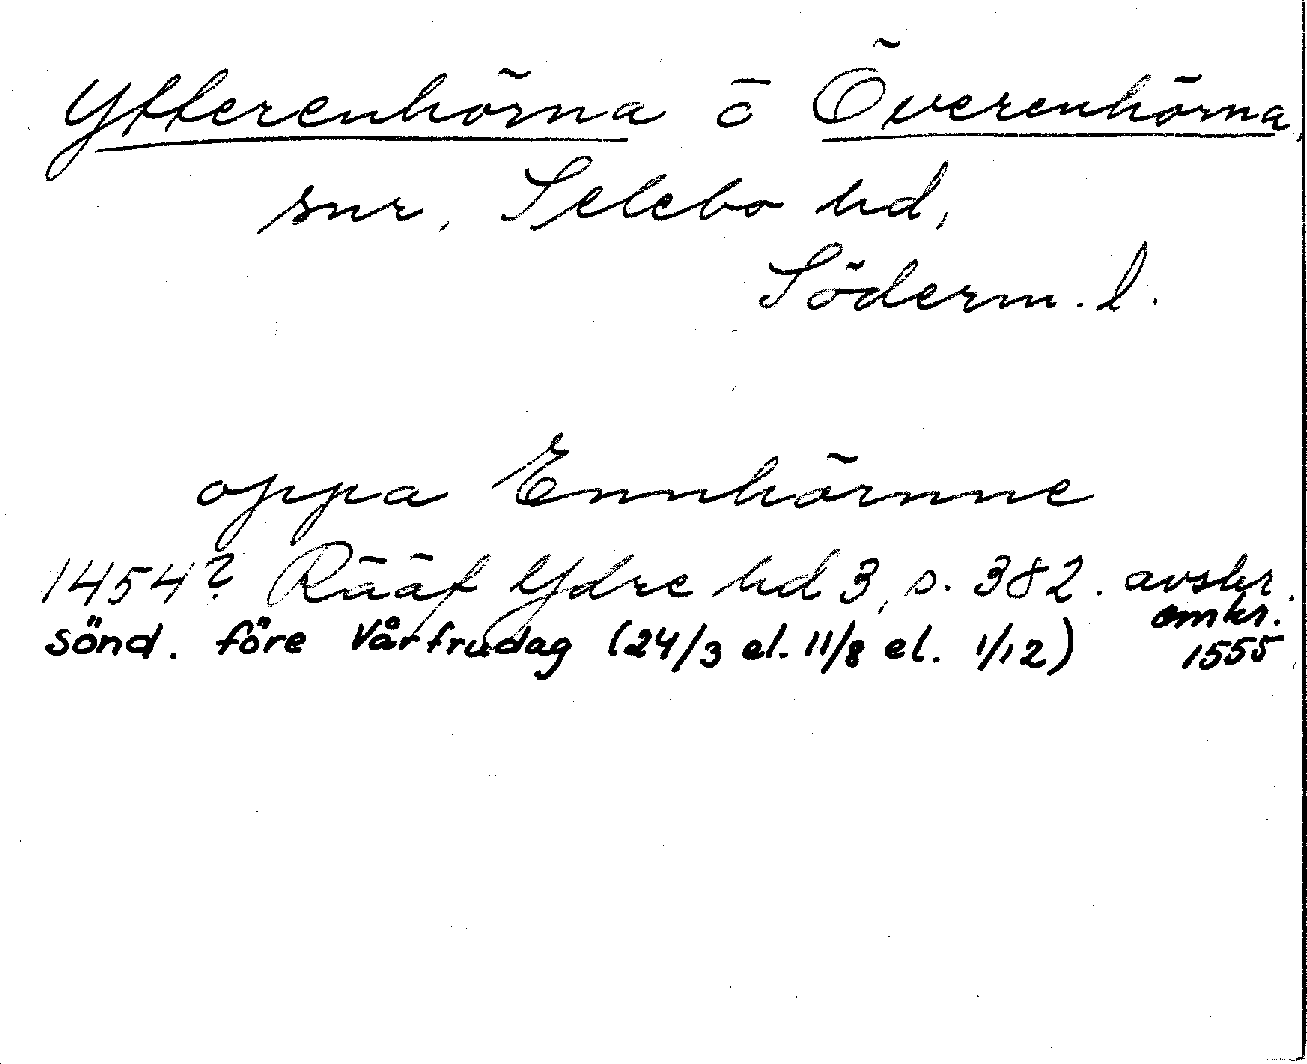 Ytterenhörna o Överenhörna,
snr, Selebo hd,
Söderm. l.
oppa Ennhörnne
1454? Rääf Ydre hd 3, s. 382. avskr. omkr. 1555
sönd. före Vårfrudag (24/3 el. 11/8 el. 1/12)